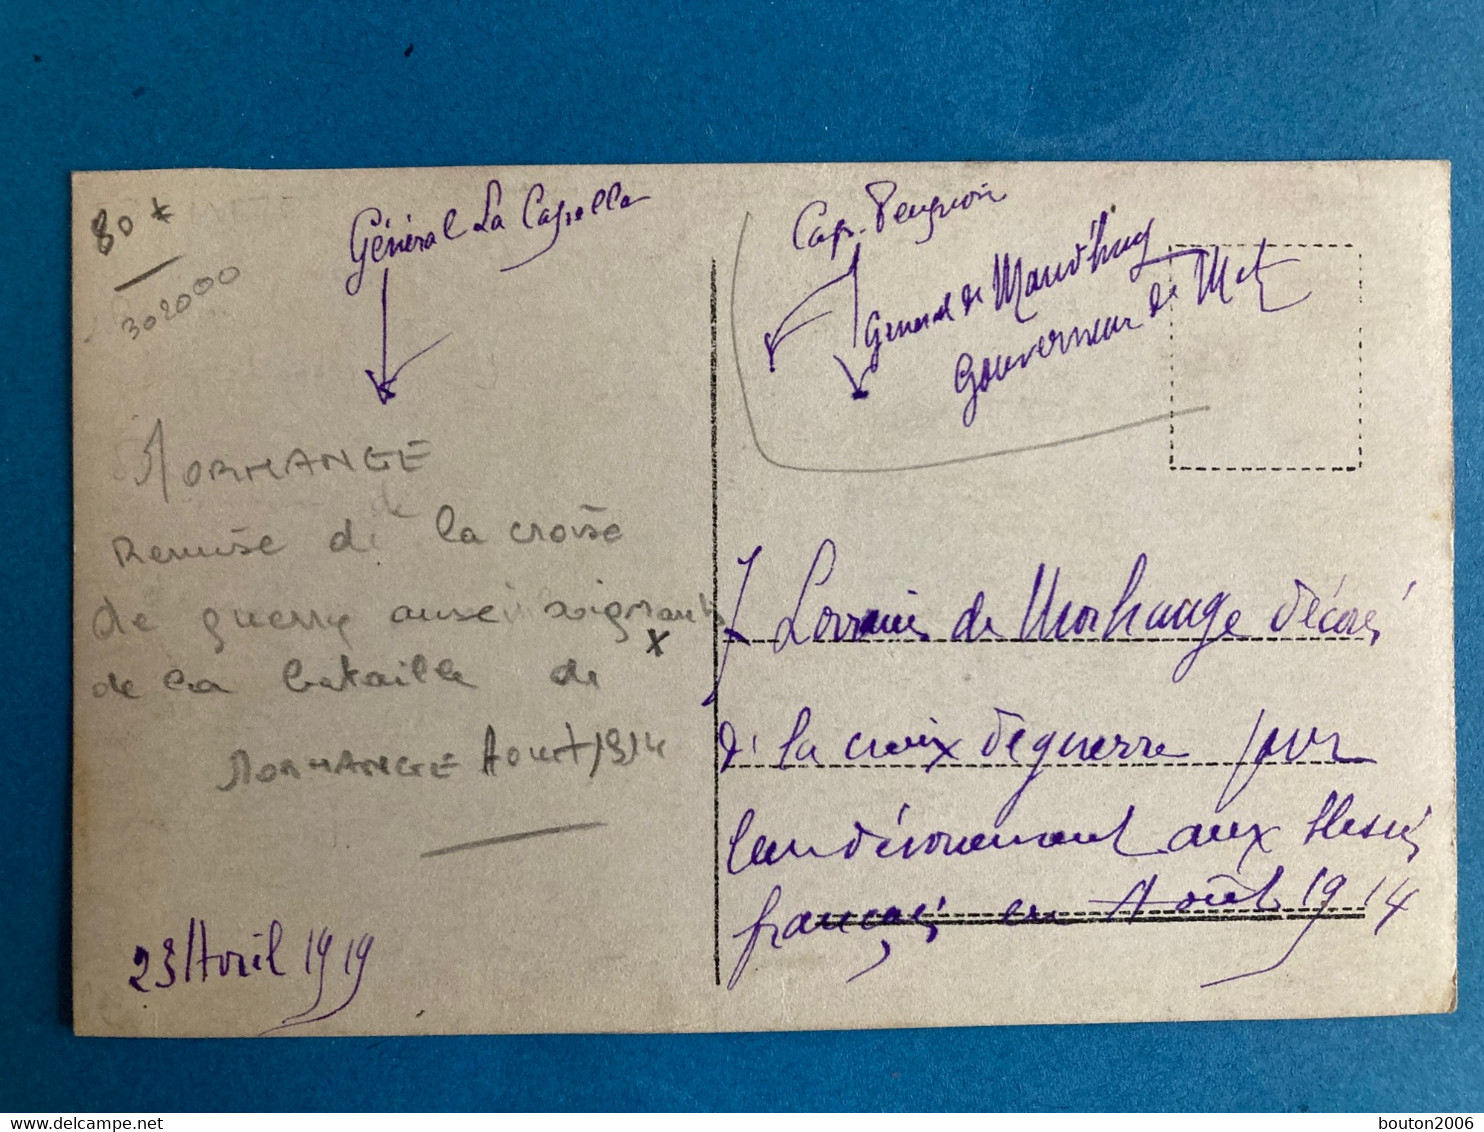 80 *
302000
Général La Capelle
Cap. Peugnon
Général de Maud'huy
Gouverneur de Metz
MORHANGE
Remise de la croise
de
de guerre auxe soignants
x
de la bataille de
MORHANGE Aout 1914
23 Avril 1919
7 Lorrains de Morhange décorés
de la croix de guerre pour
leur dévouement aux blessés
français en Août 1914
delcampe.net
bouton2006